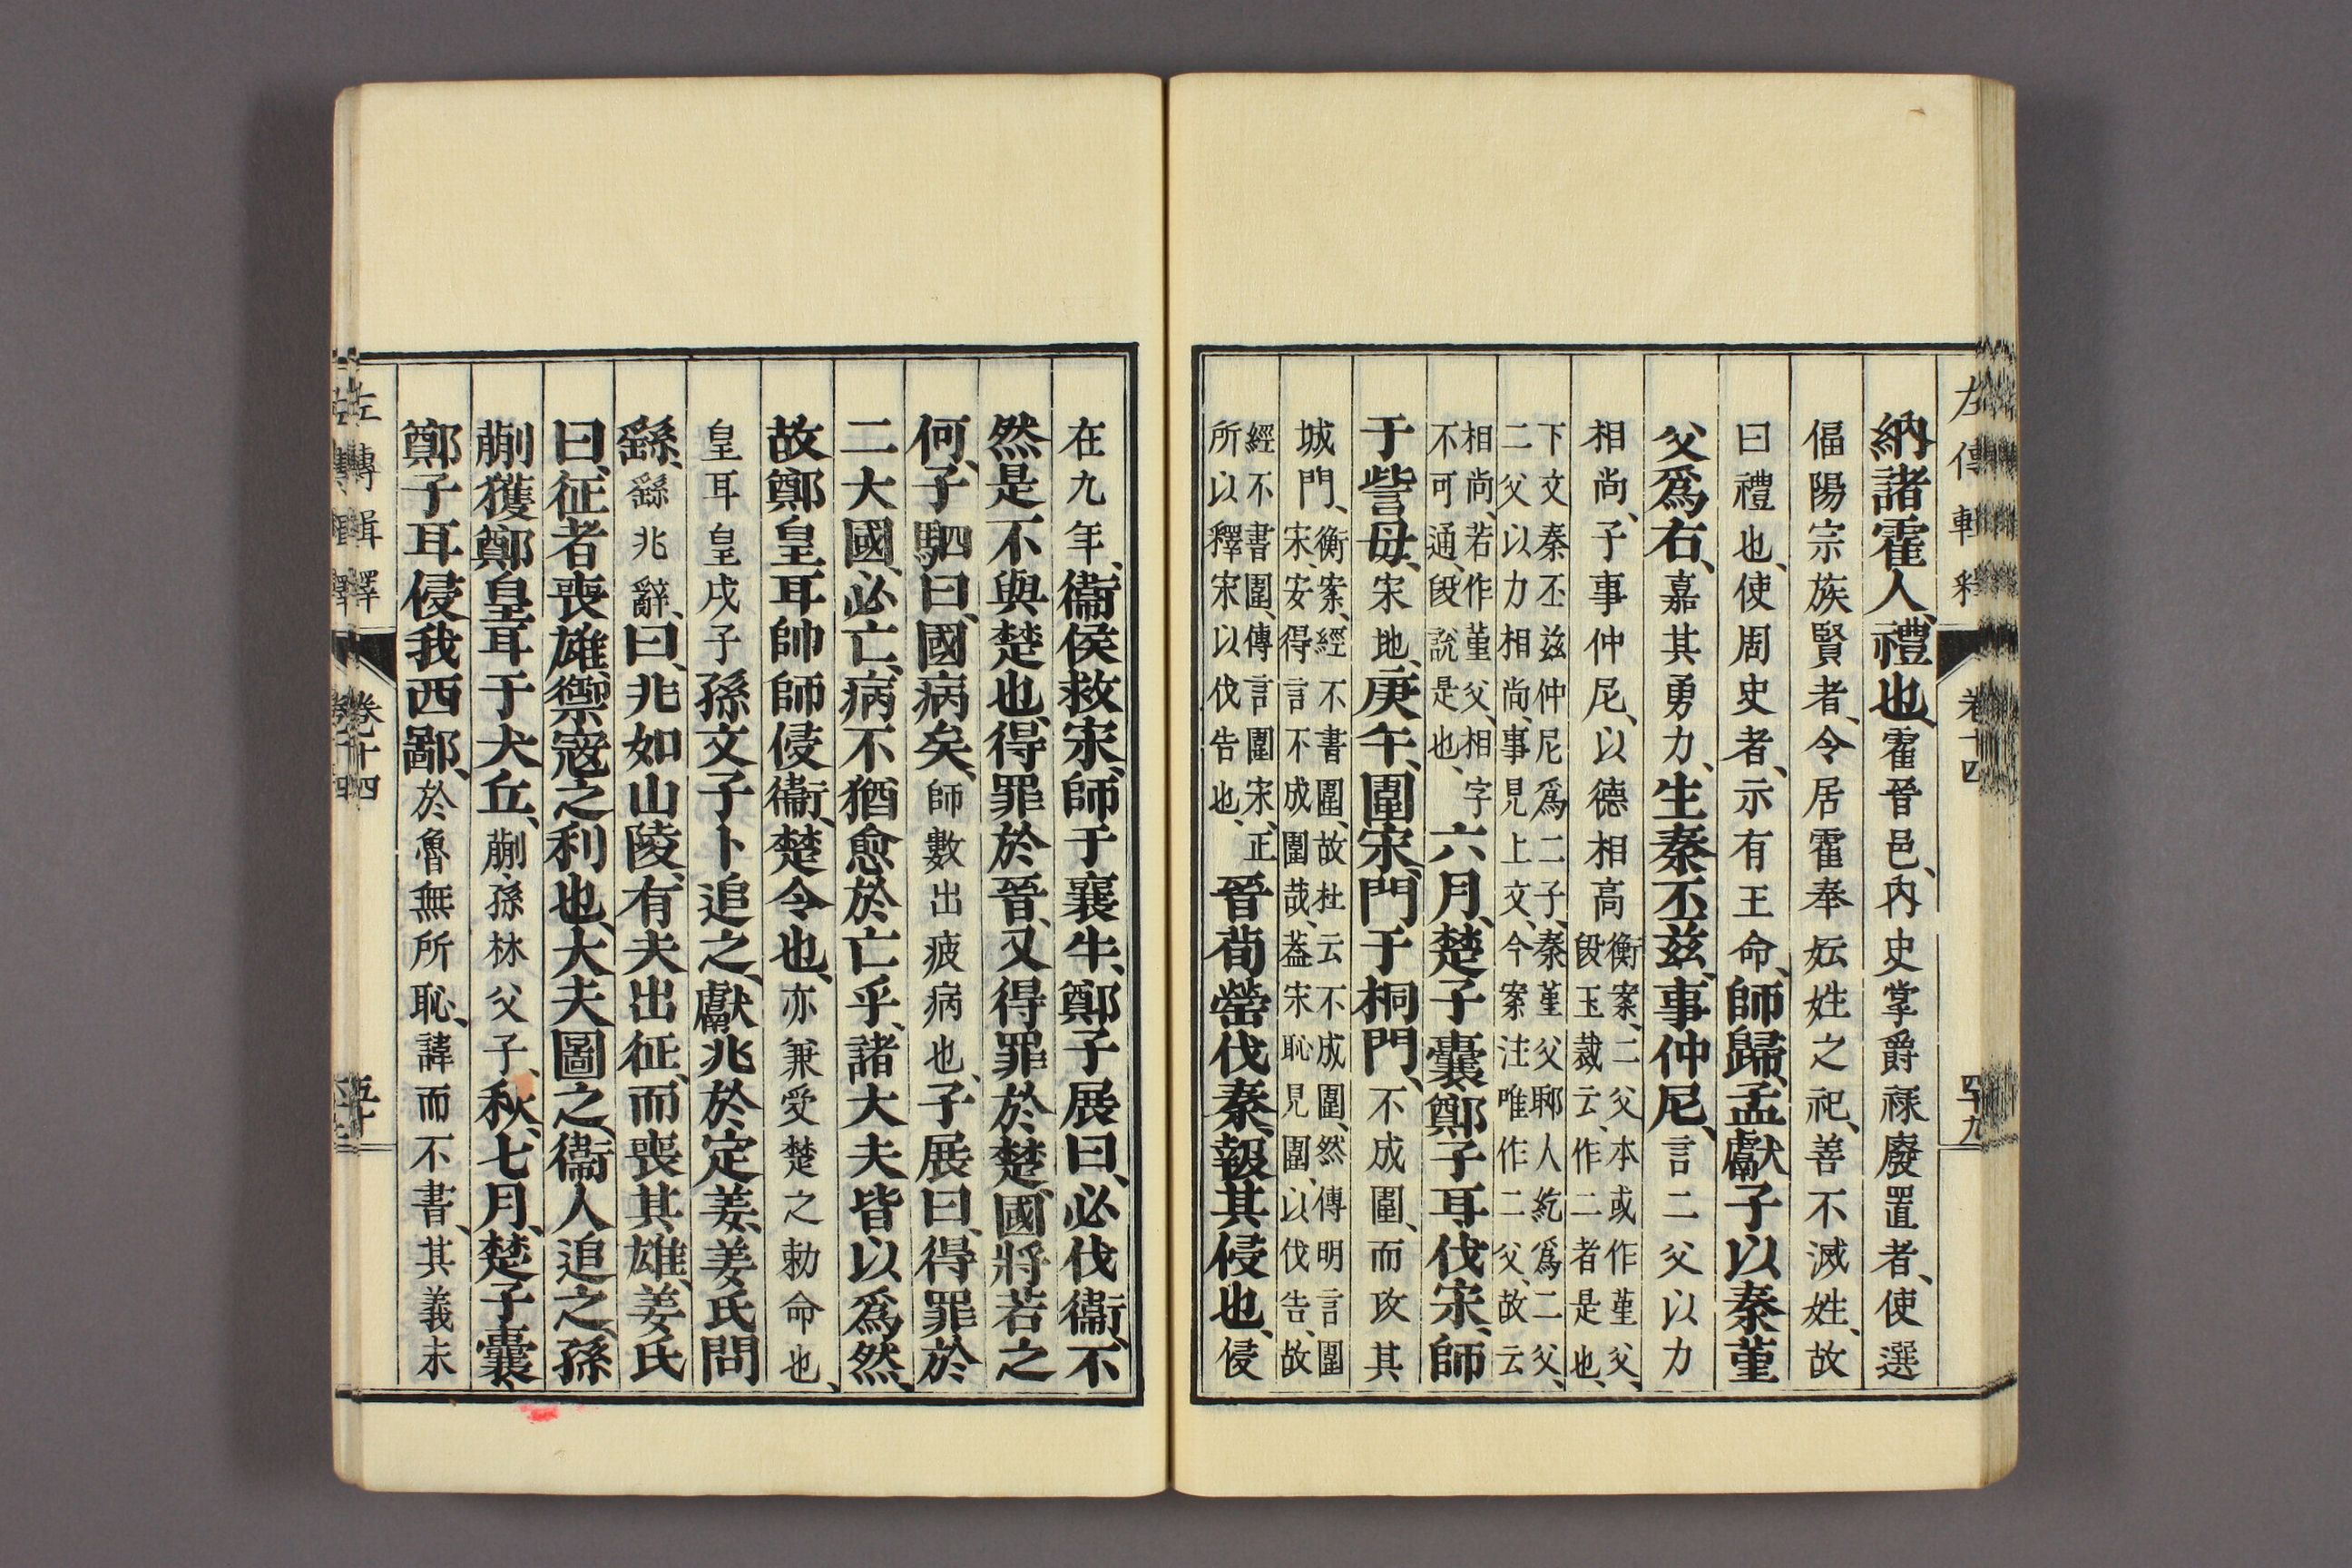 左傳輯釋 卷十四 四十九
納諸霍人、禮也、霍晉邑、內史掌爵祿廢置者、使選
偪陽宗族賢者、令居霍奉妘姓之祀、善不滅姓、故
曰禮也、使周史者、示有王命、師歸、孟獻子以秦菫
父爲右、嘉其勇力、生秦丕茲、事仲尼、言二父以力
相尚、子事仲尼、以德相高
衡案、二父本或作菫父、
段玉裁云、作二者是也、
下文秦丕茲仲尼爲二子、秦菫父郰人紇爲二父、
二父以力相尚、事見上文、今案注唯作二父、故云
相尚、若作菫父、相字
不可通、段說是也、
六月、楚子囊鄭子耳伐宋、師
于訾毋、宋地、庚午、圍宋、門于桐門、不成圍、而攻其
城門、
衡案、經不書圍、故杜云不成圍、然傳明言圍
宋、安得言不成圍哉、蓋宋恥見圍、以伐告、故
經不書圍、傳言圍宋、正
所以釋宋以伐告也、
晉荀罃伐秦、報其侵也、侵
在九年、衞侯救宋、師于襄牛、鄭子展曰、必伐衞、不
然是不與楚也、得罪於晉、又得罪於楚、國將若之
何、子駟曰、國病矣、師數出疲病也、子展曰、得罪於
二大國、必亡、病不猶愈於亡乎、諸大夫皆以爲然、
故鄭皇耳帥師侵衞、楚令也、亦兼受楚之勅命也、
皇耳皇戌子孫文子卜追之、獻兆於定姜、姜氏問
繇、繇兆辭、曰、兆如山陵、有夫出征、而喪其雄、姜氏
曰、征者喪雄、禦寇之利也、大夫圖之、衞人追之、孫
蒯獲鄭皇耳于犬丘、蒯孫林父子、秋、七月、楚子囊、
鄭子耳侵我西鄙、於魯無所恥、諱而不書、其義未
左傳輯釋 卷十四 五十